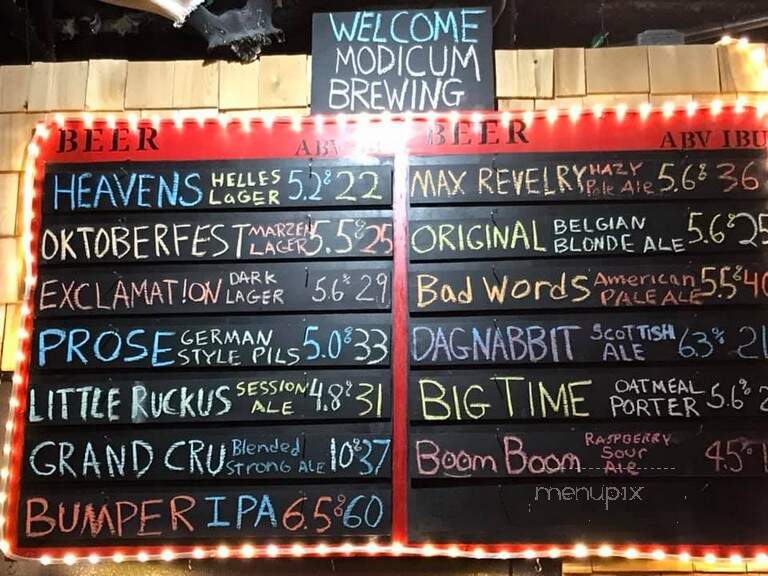 WELCOME
MODICUM
BREWING
BEER ABV
HEAVENS HELLES LAGER 5.2% 22
OKTOBERFEST MARZEN LAGER 5.5% 25
EXCLAMAT!ON DARK LAGER 5.6% 29
PROSE GERMAN STYLE PILS 5.0% 33
LITTLE RUCKUS SESSION ALE 4.8% 31
GRAND CRU Blended STRONG ALE 10% 37
BUMPER IPA 6.5% 60
BEER ABV IBU
MAX REVELRY HAZY Pale Ale 5.6% 36
ORIGINAL BELGIAN BLONDE ALE 5.6% 25
Bad WORDS American PALE ALE 5.5% 40
DAGNABBIT SCOTTISH ALE 6.3% 21
BIG TIME OATMEAL PORTER 5.6%
Boom Boom RASPBERRY SOUR Ale 4.5%
menupix